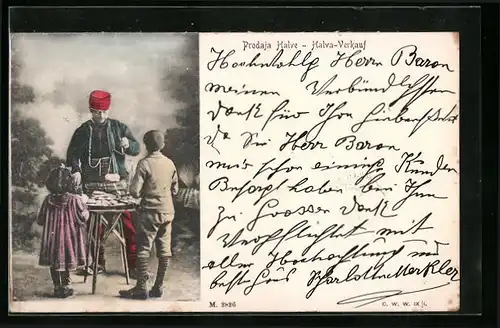 Prodaja Halve - Halva-Verkauf
Hochwohlg Herr Baron
meinen Verbündlichsten
Dank für Ihre
da Sie Herr Baron
mir schon einige Kunden
Besorgt haben bin Ihnen
zu Grossen Dank
Verpflichtet mit
aller Hochachtung und
Charlotte
M. 2826
C. W. W. IX/1.